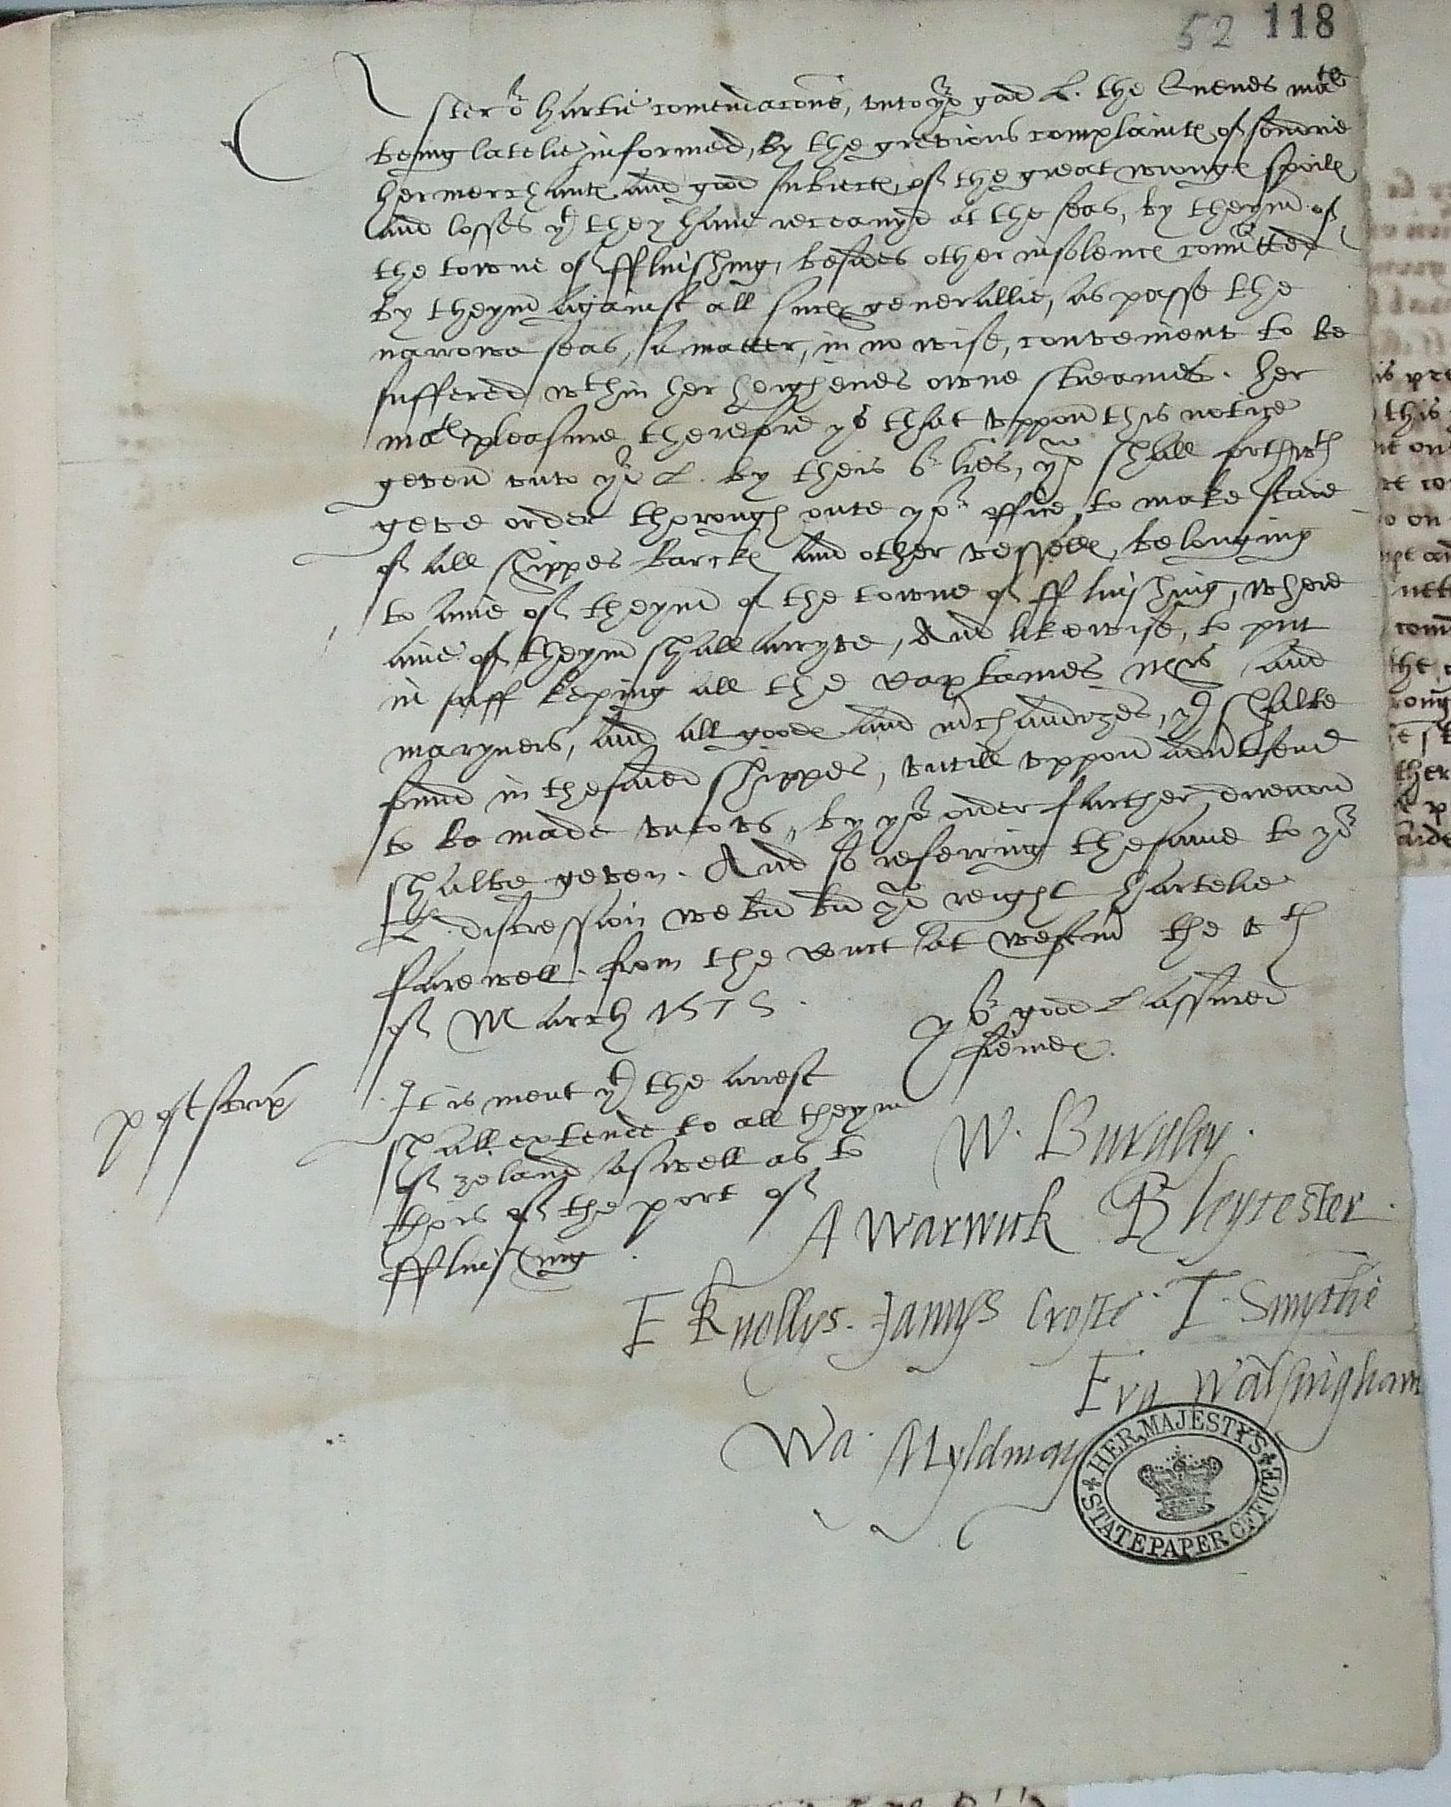 52 118
After or hartie comendacons, unto yor good L. the Quenes matie
being latelie informed, by the grevious complaintes of sondrie
her merchantes and good subiectes, of the great wronges spoiles
and losses yt they have receavyd at the seas, by theym of
the towne of fflusshing, besides other insolences comitted
by theym against all suche generallie, as passe the
narrowe seas, a matter, in no wise, convenient to be
suffered wthin her heighenes owne streames. Her
mats pleasure therefore ys that uppon this notice
geven unto yor L. by theis or lres, yow shall forthwth
geve order thorough oute yor office, to make staie
of all shippes barckes and other vesselles, belonging
to anie of theym of the towne of fflusshing, where
anie of theym shall arryve, And likewise, to put
in saff keping all the captaines mrs and
maryners, and all goodes and mchandyzes, yt shalbe
found in thesaied shippes, untill uppon advertisemt
to be made unto us, by yor order further direction
shalbe geven. And so referring thesame to yor
L. discression we bid yor right hartelie
farewell. from the court at westm the vth
of March 1575.
yor good L assured
frendes.
postscrip
It is ment yt the arrest
shall extende to all theym
of zeland aswell as to
thois of the port of
fflusshing.
W. Burghley.
A Warwick R Leycester.
F Knollys. Jamys Crofte. T. Smythe
Fra Walsingham
Wa. Myldmay
HER MAJESTY'S STATE PAPER OFFICE